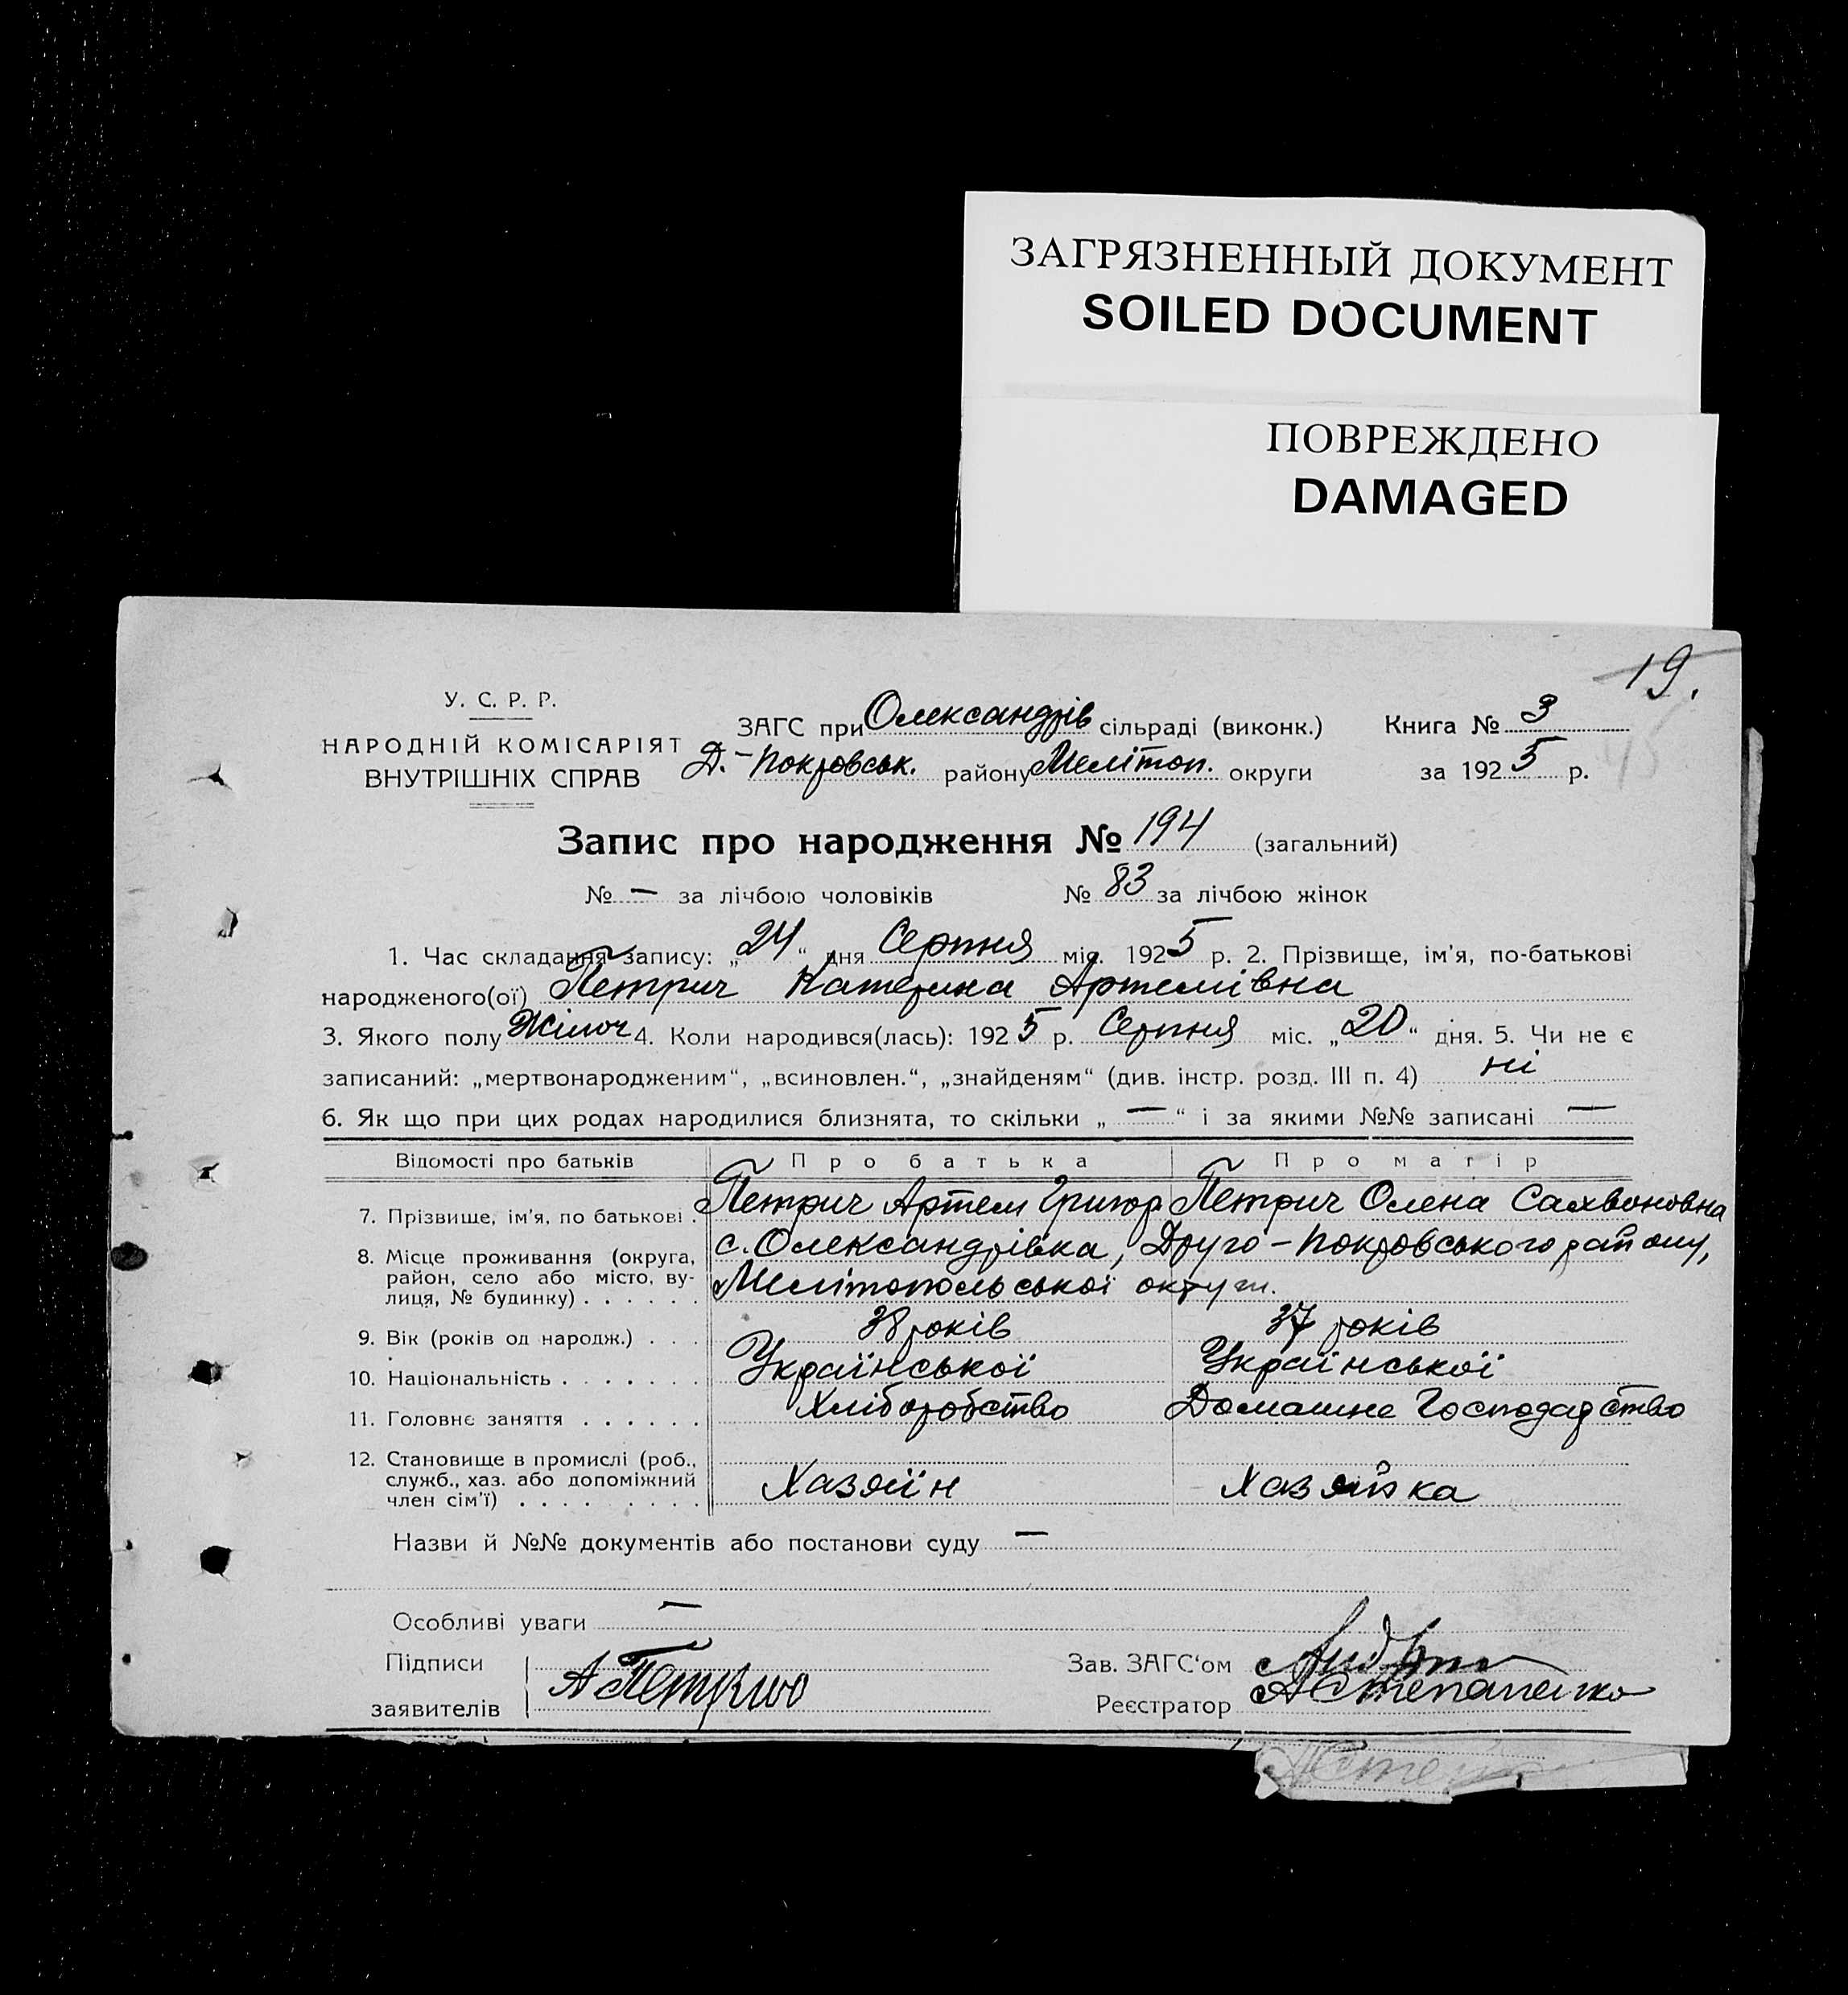 ЗАГРЯЗНЕННЫЙ ДОКУМЕНТ
SOILED DOCUMENT
ПОВРЕЖДЕНО
DAMAGED
19.
У. С. Р. Р.
НАРОДНІЙ КОМІСАРІЯТ
ВНУТРІШНІХ СПРАВ
ЗАГС при Олександрів сільраді (виконк.) Книга № 3
Д.-Покровськ. району Мелітоп. округи за 1925 р.
45
Запис про народження № 194 (загальний)
№ — за лічбою чоловіків № 83 за лічбою жінок
1. Час складання запису: „24“ дня Серпня міс. 1925 р. 2. Прізвище, ім'я, по-батькові
народженого(ої) Петрич Катерина Артемівна
3. Якого полу Жіноч 4. Коли народився(лась): 1925 р. Серпня міс. „20“ дня. 5. Чи не є
записаний: „мертвонародженим“, „всиновлен.“, „знайденям“ (див. інстр. розд. III п. 4) ні
6. Як що при цих родах народилися близнята, то скільки „—“ і за якими №№ записані —
Відомості про батьків Про батька Про матір
7. Прізвище, ім'я, по батькові . Петрич Артем Григор. Петрич Олена Сахвоновна
8. Місце проживання (округа, район, село або місто, вулиця, № будинку) . . . . . . с. Олександрівка, Друго-Покровського району,
Мелітопольської округи.
9. Вік (років од народж.) . . . 38 років 37 років
10. Національність . . . . . . . Української Української
11. Головнє заняття . . . . . . Хліборобство Домашнє Господарство
12. Становище в промислі (роб., служб., хаз. або допоміжний член сім'ї) . . . . . . . . Хазяїн Хазяйка
Назви й №№ документів або постанови суду —
Особливі уваги —
Підписи заявителів А Петрич
Зав. ЗАГС‘ом
Реєстратор А Степаненко